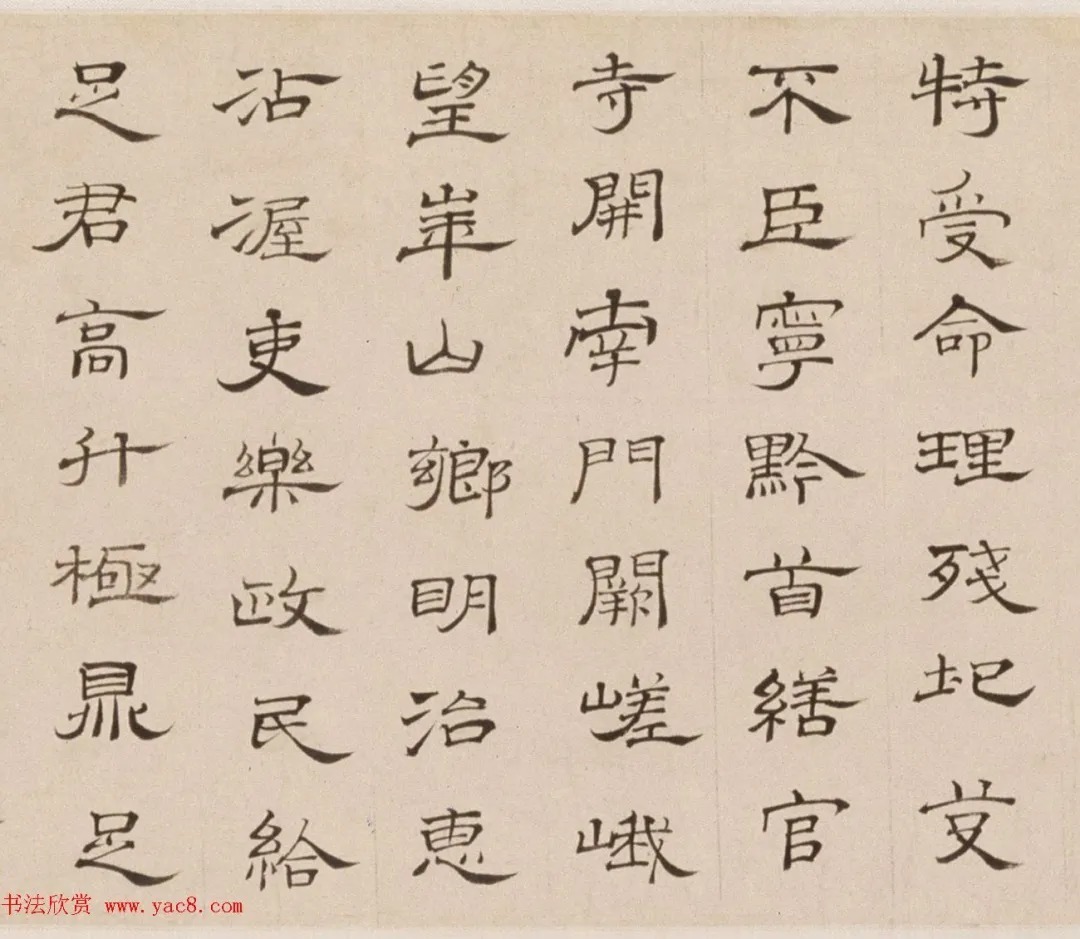 特受命理殘圮芟
不臣寧黔首繕官
寺開南門闕嵯峨
望崋山鄉明治恵
沾渥吏樂政民給
足君高升極鼎足
书法欣赏 www.yac8.com